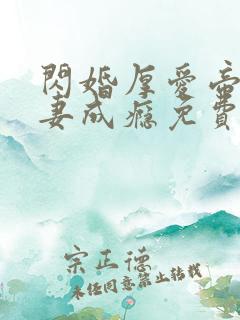 閃婚厚愛帝
妻成癮免費
宗正德
未经同意禁止转载